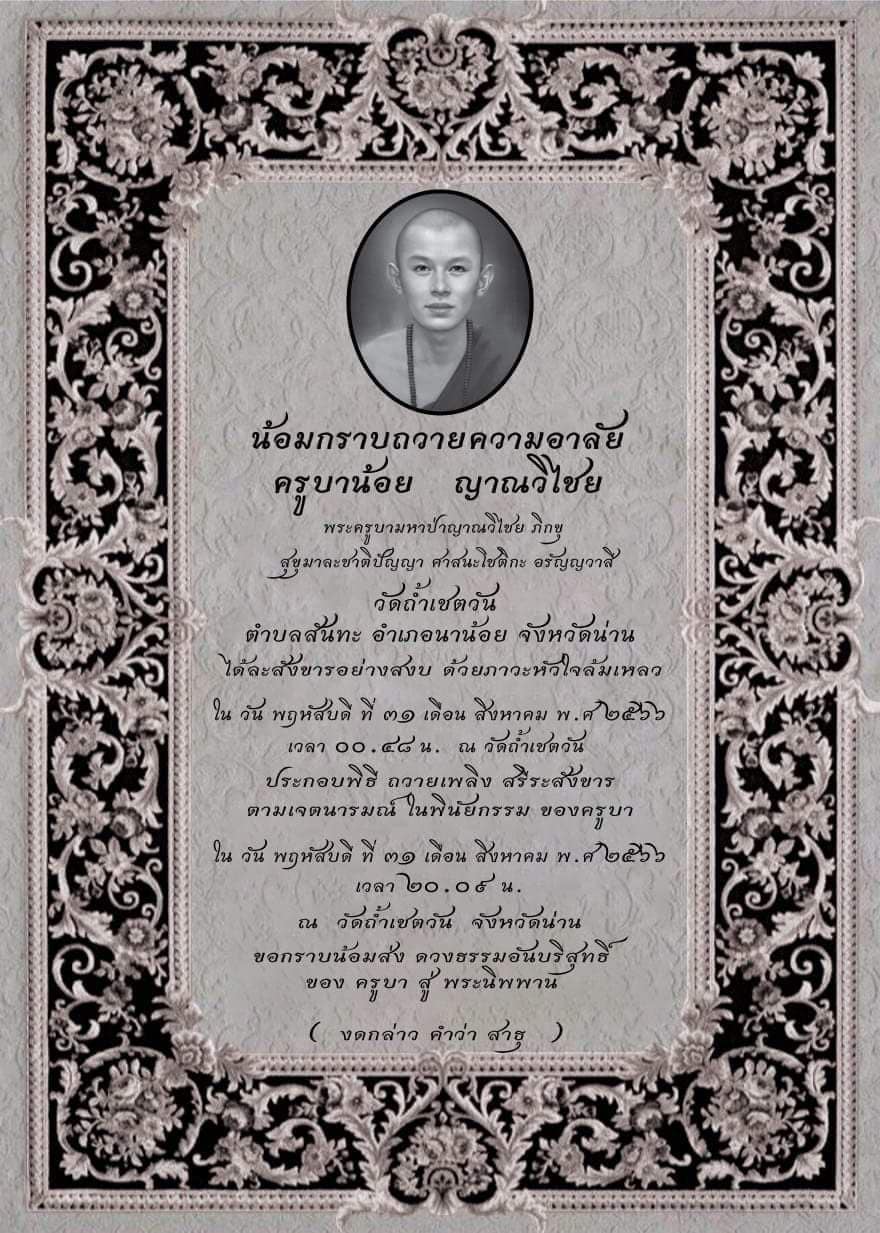 น้อมกราบถวายความอาลัย
ครูบาน้อย ญาณวิไชย
พระครูบามหาปาญาณวิไชย ภิกขุ
สุขุมาละชาติปัญญา ศาสนะโชติกะ อรัญญวาสี
วัดถ้ำเชตวัน
ตำบลสันทะ อำเภอนาน้อย จังหวัดน่าน
ได้ละสังขารอย่างสงบ ด้วยภาวะหัวใจล้มเหลว
ใน วัน พฤหัสบดี ที่ ๓๑ เดือน สิงหาคม พ.ศ ๒๕๖๖
เวลา ๐๐.๔๘ น. ณ วัดถ้ำเชตวัน
ประกอบพิธี ถวายเพลิง สรีระสังขาร
ตามเจตนารมณ์ ในพินัยกรรม ของครูบา
ใน วัน พฤหัสบดี ที่ ๓๑ เดือน สิงหาคม พ.ศ ๒๕๖๖
เวลา ๒๐.๐๙ น.
ณ วัดถ้ำเชตวัน จังหวัดน่าน
ขอกราบน้อมส่ง ดวงธรรมอันบริสุทธิ์
ของ ครูบา สู่ พระนิพพาน
( งดกล่าว คำว่า สาธุ )